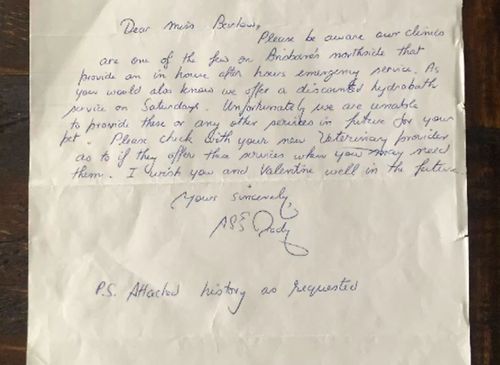 Dear Miss Barlow,
Please be aware our clinics
are one of the few on Brisbane's northside that
provide an in house after hours emergency service. As
you would also know we offer a discounted hydrobath
service on Saturdays. Unfortunately we are unable
to provide these or any other services in future for your
pet. Please check with your new Veterinary provider
as to if they offer these services when you may need
them. I wish you and Valentine well in the future.
Yours sincerely,
P.S. Attached history as requested